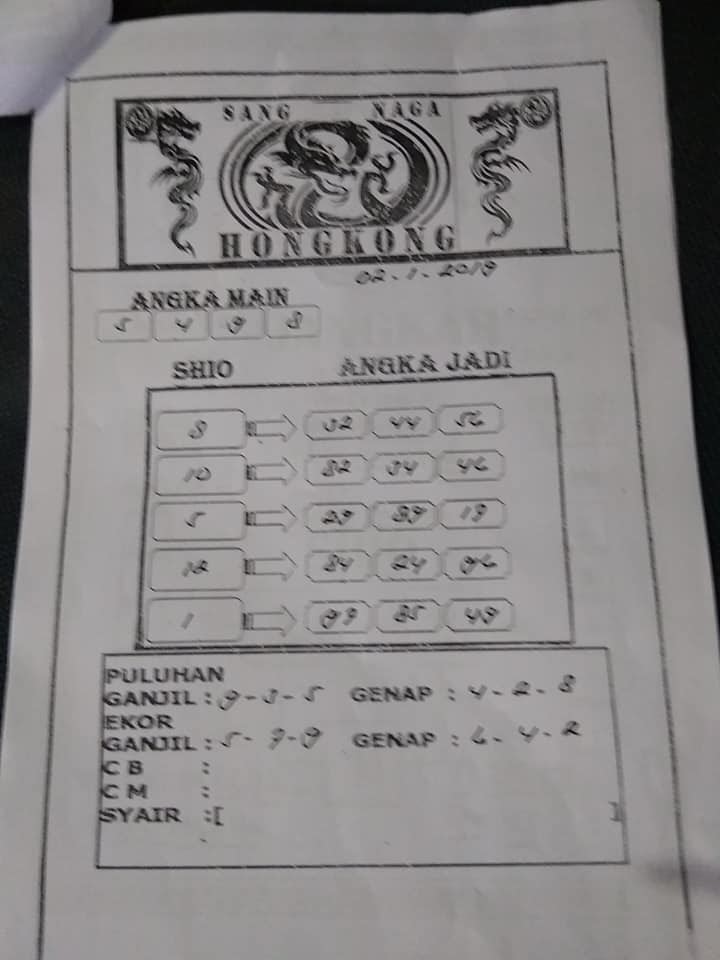 SANG NAGA
HONGKONG
02-1-2019
ANGKA MAIN
5 4 9 8
SHIO ANGKA JADI
8 32 44 56
10 82 34 46
5 29 89
12 84 24 96
1 85 49
PULUHAN
GANJIL : 9-3-5 GENAP : 4-2-8
EKOR
GANJIL : 5-7-9 GENAP : 6-4-2
C B :
C M :
SYAIR :[ ]